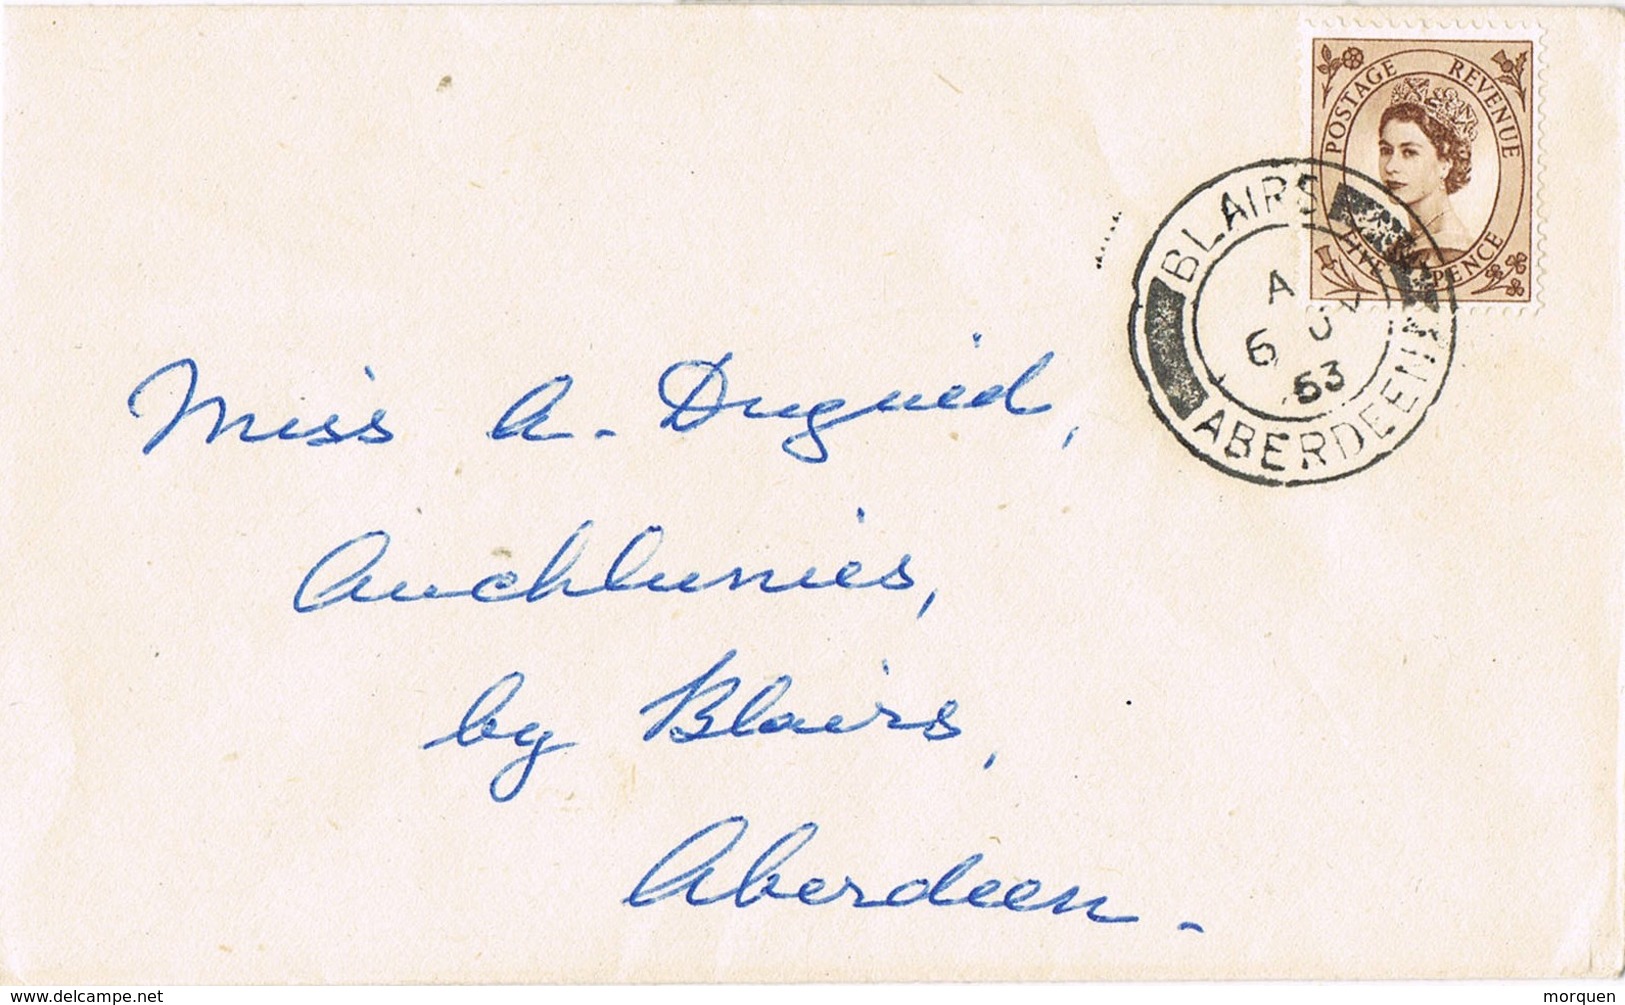 POSTAGE REVENUE
FIVE PENCE
BLAIRS
A
6
63
ABERDEEN
Miss A. Duguid,
Auchlunies,
by Blairs,
Aberdeen.
www.delcampe.net
morquen